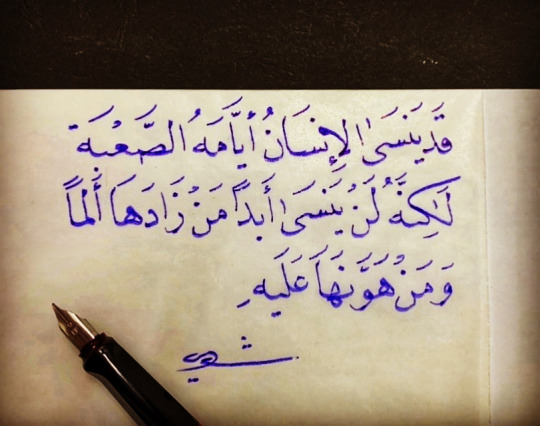 قَدْ يَنْسَى الإِنسَانُ أَيَّامَهُ الصَّعْبَة
لَكِنَّهُ لَنْ يَنْسَى أَبَدًا مَنْ زَادَهَا أَلَمًا
وَمَنْ هَوَّنَهَا عَلَيْهِ